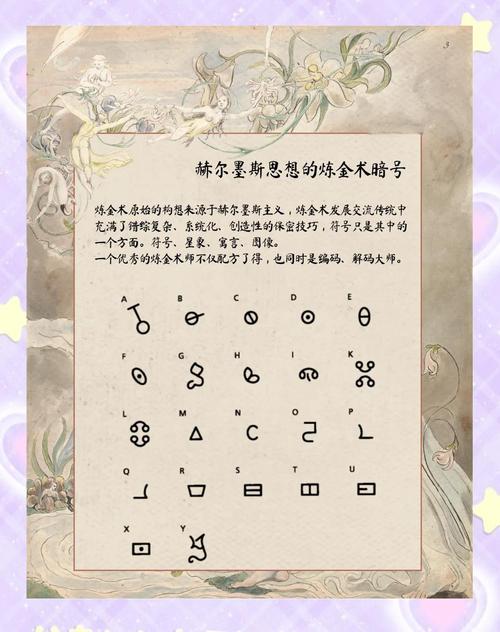 3
赫尔墨斯思想的炼金术暗号
炼金术原始的构想来源于赫尔墨斯主义，炼金术发展交流传统中
充满了错综复杂、系统化、创造性的保密技巧，符号只是其中的
一个方面。符号、星象、寓言、图像。
一个优秀的炼金术师不仅配方了得，也同时是编码、解码大师。
A B C D E
F G H I K
L M N O P
Q R S T U
X Y